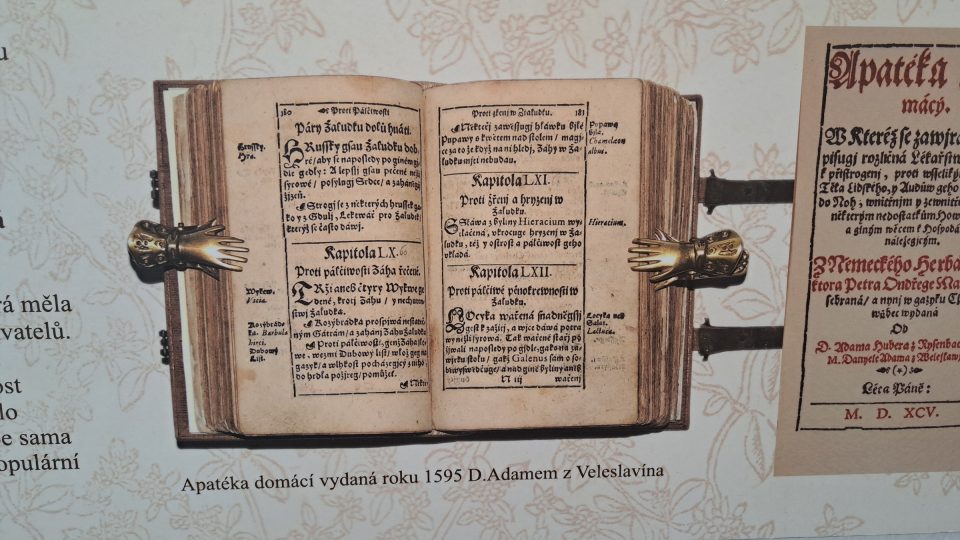 u
rá měla
vatelů.
ost
lo
e sama
opulární
380 Proti Pálčiwosti
Páry Žaludku dolů hnáti.
Hrussky.
HRussky gsau Žaludku dob-
ré / aby se naposledy po giném gi-
dle gedly: A lepssý gsau pečené nežli
syrowé / posylugj Srdce / a zahánegj
žjzeň.
Strogj se z některých hrussek ga-
ko y z Gdulj, Lekwař pro Žaludek /
kterýž se často dáwj.
Kapitola LX.
Proti pálčiwosti Záha řečené.
Wykew.
Vicia.
TRži aneb čtyry Wykwe ge-
dené, krotj Žáhu / y nechuten-
stwj Žaludku.
Barbula
hirci.
Dubowý
List.
Kozybrádka prospiwá
ným Játrám / a zahánj Žáhu Žaludka.
Proti pálčiwosti
we, wezmi Dubowý list / wlož geg na
gazyk / a wlhkost pocházegjcý z něho
do hrdla požjreg / pomůžeť.
Proti žženj w Žaludku. 381
Někteřj zawěssugj hláwku bjlé
Pupawy s kwětem nad stolem / magj-
ce za to že když na ni hledj, Žáhy w Ža-
ludku mjti nebudau.
Pupawa
bjlá.
Chameleon
albus.
Kapitola LXI.
Proti žženj a hryzenj w
Žaludku.
Hieracium.
SSťáwa z byliny Hieracium wy-
tlačená, vkrocuge hryzenj w Ža-
ludku, též y ostrost a pálčiwost geho
vkládá.
Kapitola LXII.
Proti pálčiwé
Žaludku.
Locyka
Salát.
Lactuca.
LOcyka wařená snadněgssý
gest k zažitj, a wjce dáwá potra-
wy nežli syrowá. Tak wařené
naposledy po gjdle
Galenus sám o so-
wařenj
Apatéka
mácý.
W Kteréž se zawjra
pisugj rozličná Lékařstw
k přistrogenj, proti wsselikým
Těla Lidského, y Audůw geho
do Noh, wnitřnjm y zewnitřn
některým nedostatkům How
a giným wěcem k Hospodá
náležegjcým.
Z Německého Herbá
ktora Petra Ondřege Ma
sebraná / a nynj w gazyku Č
wůbec wydaná
Od
D. Adama Hubera z Rysenbac
M. Danyele Adama z Weleslaw
(*)
Léta Páně:
M. D. XCV.
Apatéka domácí vydaná roku 1595 D.Adamem z Veleslavína